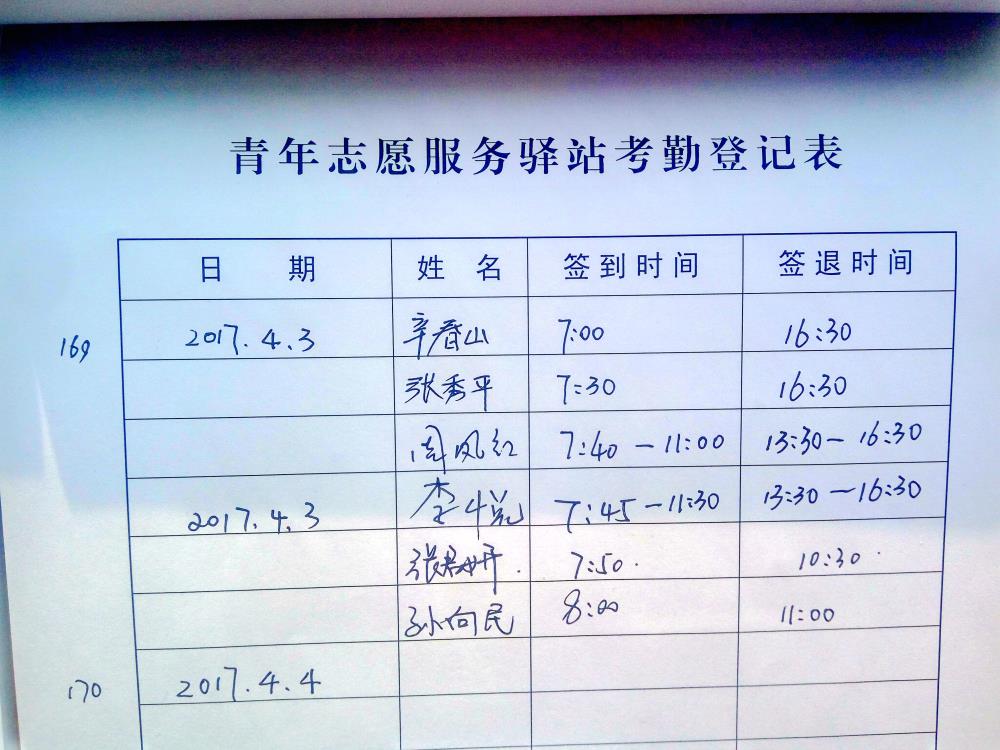 青年志愿服务驿站考勤登记表
日 期 姓 名 签到时间 签退时间
169 2017.4.3 辛春山 7:00 16:30
张秀平 7:30 16:30
周凤红 7:40-11:00 13:30-16:30
2017.4.3 李悦 7:45-11:30 13:30-16:30
张 7:50. 10:30.
孙向民 8:00 11:00
170 2017.4.4